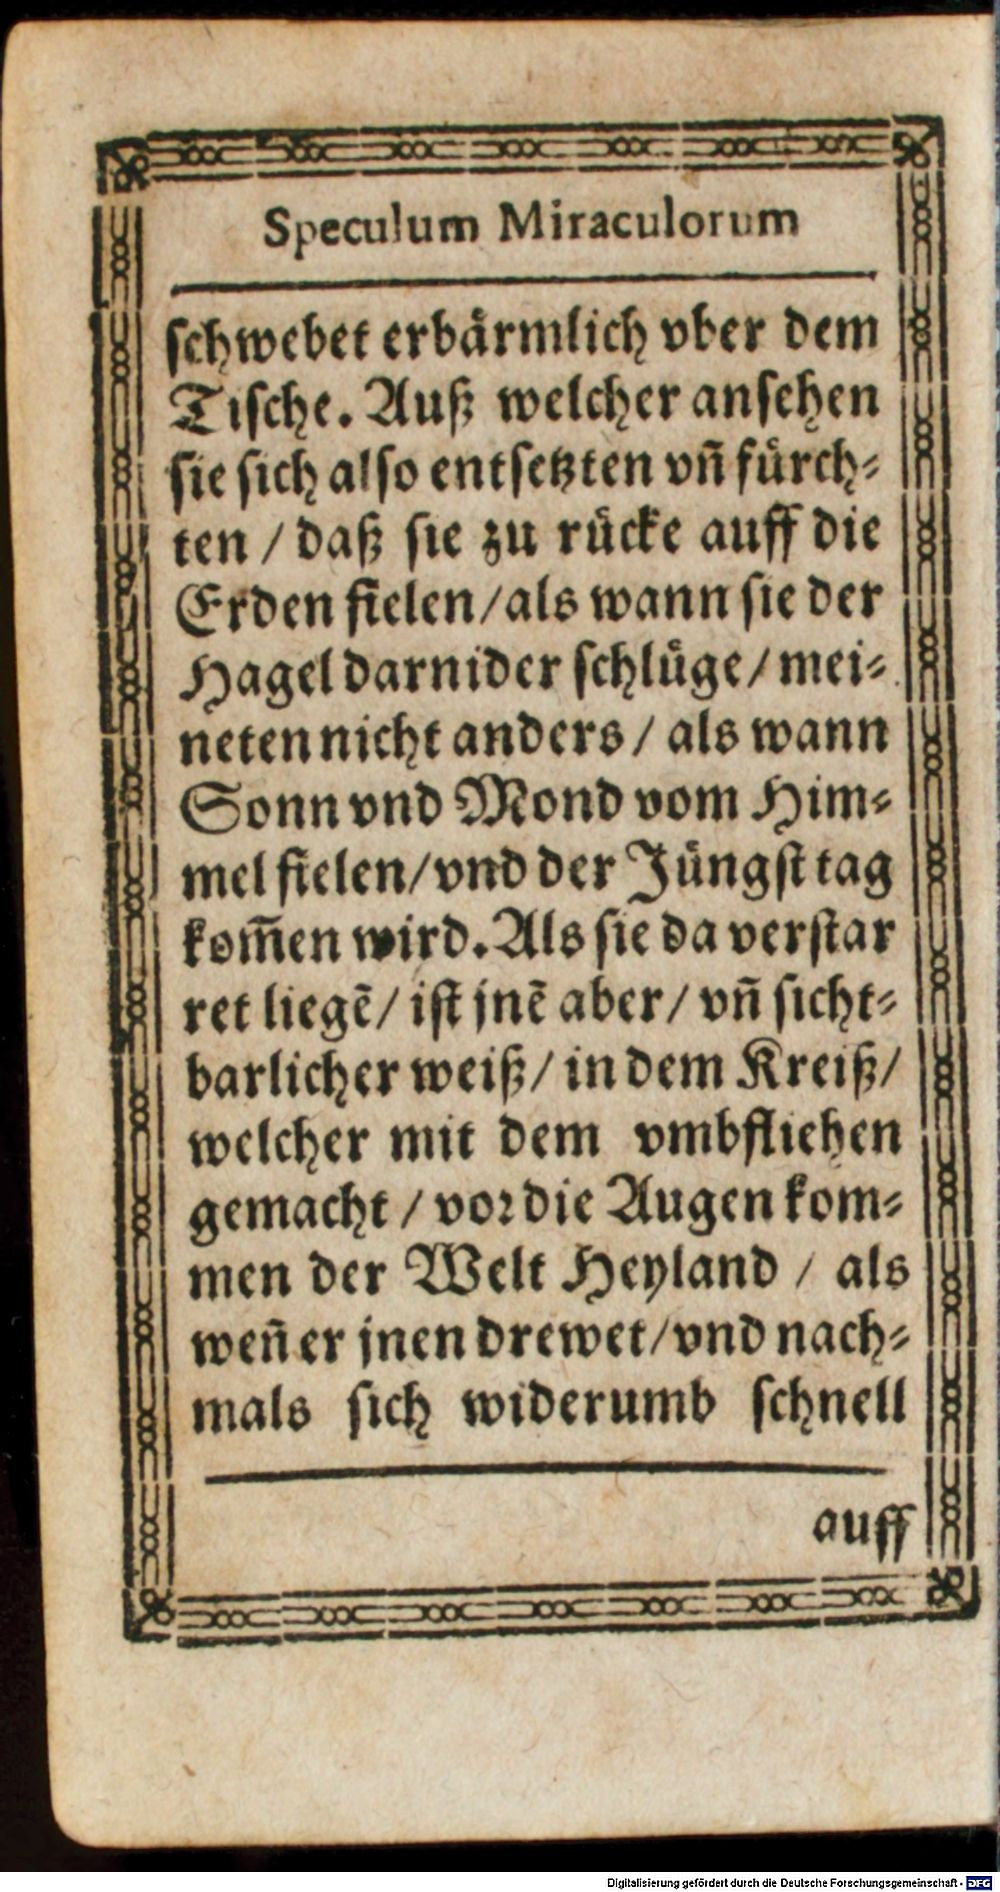 Speculum Miraculorum
schwebet erbärmlich vber dem
Tische. Auß welcher ansehen
sie sich also entsetzten vñ fürch-
ten / daß sie zu rücke auff die
Erden fielen/als wann sie der
Hagel darnider schlüge/mei-
neten nicht anders/ als wann
Sonn vnd Mond vom Him-
mel fielen/vnd der Jüngst tag
kom̃en wird. Als sie da verstar
ret liegẽ/ ist jnẽ aber/ vñ sicht-
barlicher weiß/ in dem Kreiß/
welcher mit dem vmbfliehen
gemacht / vor die Augen kom-
men der Welt Heyland / als
weñ er jnen drewet/vnd nach-
mals sich widerumb schnell
auff
Digitalisierung gefördert durch die Deutsche Forschungsgemeinschaft - DFG